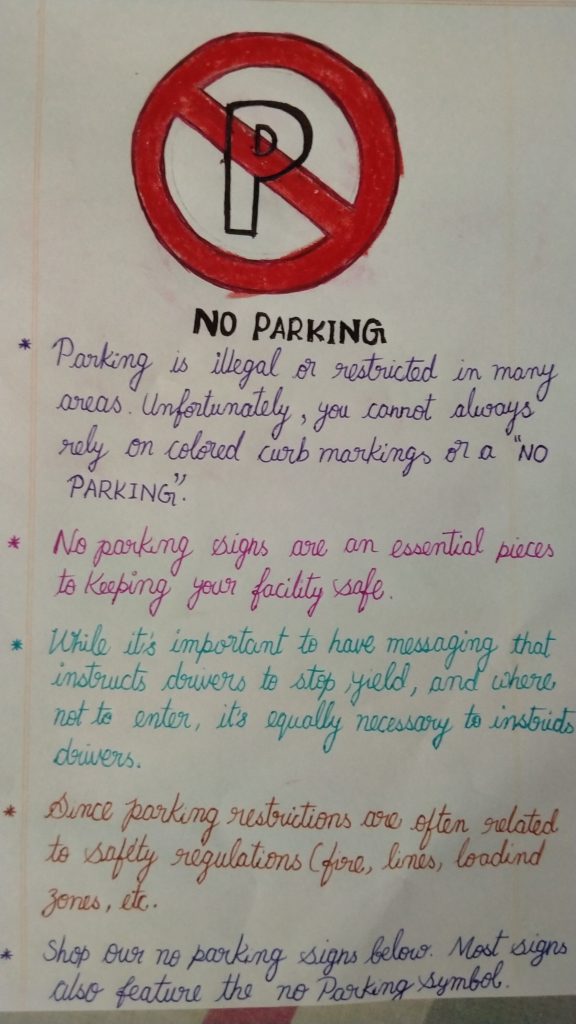 P
NO PARKING
* Parking is illegal or restricted in many
areas. Unfortunately, you cannot always
rely on colored curb markings or a "NO
PARKING".
* No parking signs are an essential pieces
to Keeping your facility safe.
* While it's important to have messaging that
instructs drivers to stop yield, and where
not to enter, it's equally necessary to instricts
drivers.
* Since parking restrictions are often related
to safety regulations (fire, lines, loadind
zones, etc.
* Shop our no parking signs below. Most signs
also feature the no Parking symbol.